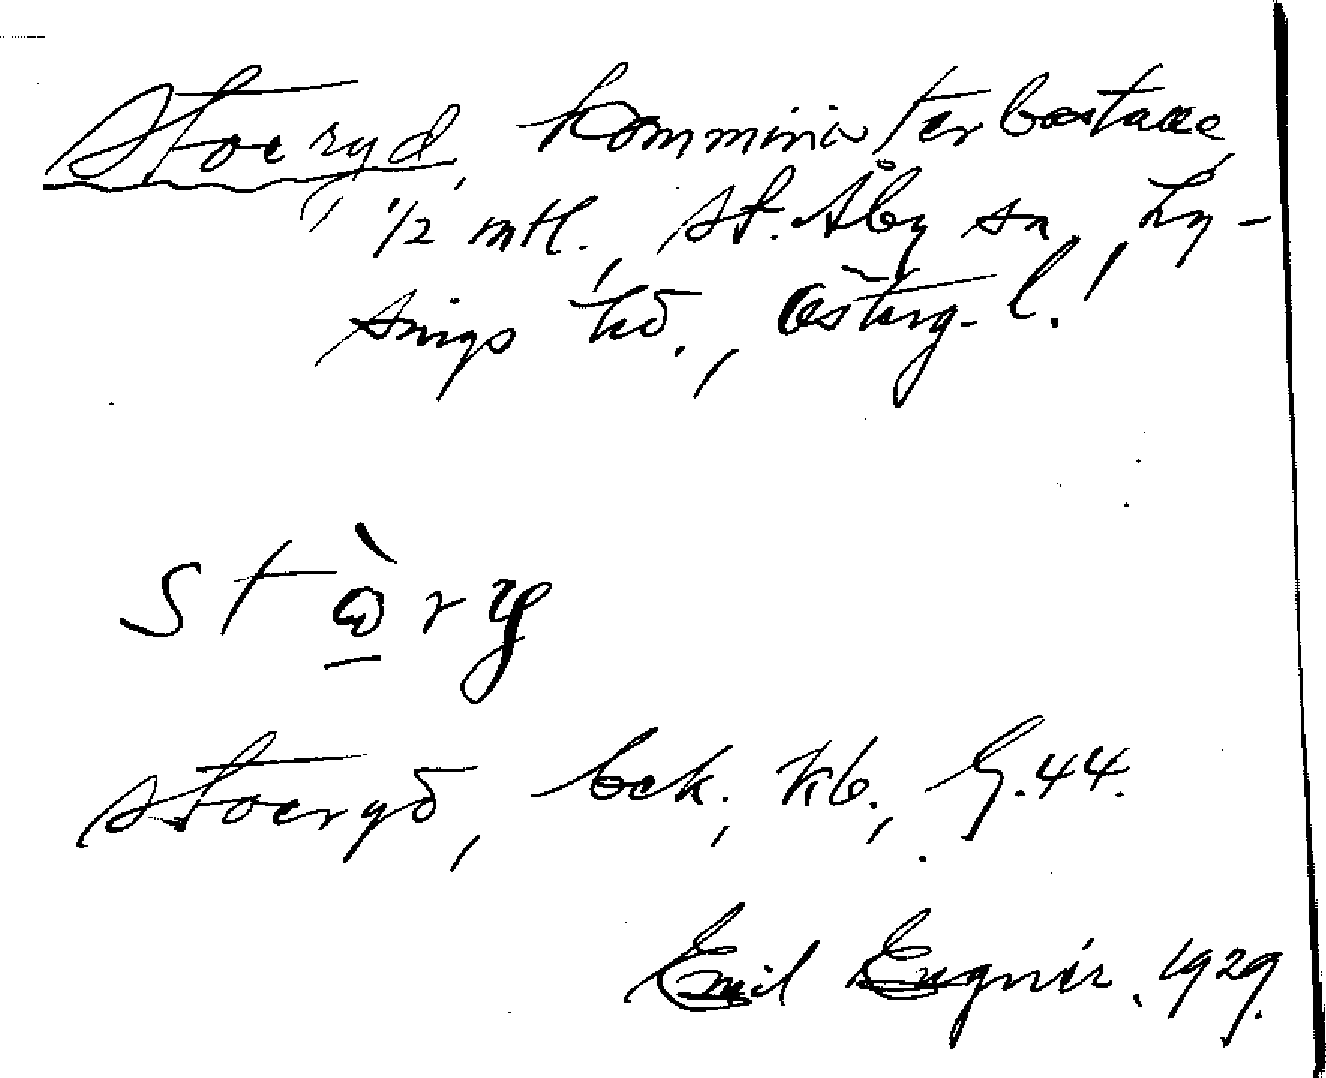 Stoeryd, komministerboställe,
1/2 mtl., St. Åby sn, Ly-
sings hd., Österg. l.
stò̱ry
Stoeryd, bek. kb., G. 44.
Emil Engnér. 1929.